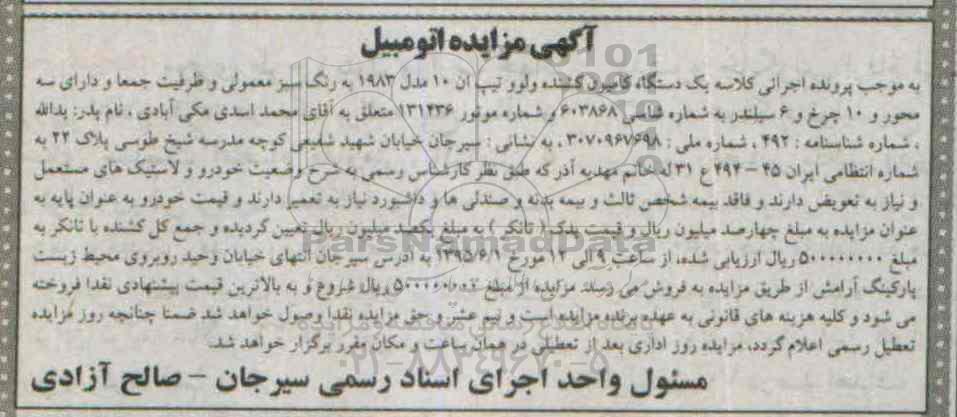 آگهی مزایده اتومبیل
به موجب پرونده اجرائی کلاسه یک دستگاه کامیون کشنده ولوو تیپ ان ۱۰ مدل ۱۹۸۳ به رنگ سبز معمولی و ظرفیت جمعا و دارای سه
محور و ۱۰ چرخ و ۶ سیلندر به شماره شاسی ۶۰۳۸۶۸ و شماره موتور ۱۳۱۴۳۶ متعلق به آقای محمد اسدی مکی آبادی ، نام پدر: یدالله
، شماره شناسنامه : ۴۹۲ ، شماره ملی : ۳۰۷۰۹۶۷۶۹۸ ، به نشانی : سیرجان خیابان شهید شفیعی کوچه مدرسه شیخ طوسی پلاک ۲۲ به
شماره انتظامی ایران ۴۵ – ۴۹۴ ع ۳۱ له خانم مهدیه آذر که طبق نظر کارشناس رسمی به شرح وضعیت خودرو و لاستیک های مستعمل
و نیاز به تعویض دارند و فاقد بیمه شخص ثالث و بیمه بدنه و صندلی ها و داشبورد نیاز به تعمیر دارند و قیمت خودرو به عنوان پایه به
عنوان مزایده به مبلغ چهارصد میلیون ریال و قیمت یدک ( تانکر ) به مبلغ یکصد میلیون ریال تعیین گردیده و جمع کل کشنده با تانکر به
مبلغ ۵۰۰۰۰۰۰۰۰ ریال ارزیابی شده، از ساعت ۹ الی ۱۲ مورخ ۱۳۹۵/۶/۱ به آدرس سیرجان انتهای خیابان وحید روبروی محیط زیست
پارکینگ آرامش از طریق مزایده به فروش می رسد. مزایده از مبلغ ۵۰۰۰۰۰۰۰۰ ریال شروع و به بالاترین قیمت پیشنهادی نقدا فروخته
می شود و کلیه هزینه های قانونی به عهده برنده مزایده است و نیم عشر و حق مزایده نقدا وصول خواهد شد ضمنا چنانچه روز مزایده
تعطیل رسمی اعلام گردد، مزایده روز اداری بعد از تعطیلی در همان ساعت و مکان مقرر برگزار خواهد شد.
مسئول واحد اجرای اسناد رسمی سیرجان – صالح آزادی
ParsNamadData
۰۲۱-۸۸۳۴۹۶۷۰-۵